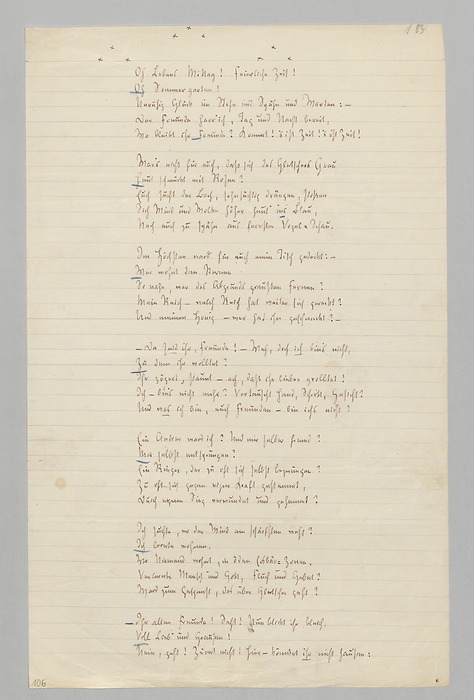 Oh Lebens Mittag! Feierliche Zeit!
Oh Sommergarten!
Unruhig Glück im Stehn und Spähn und Warten: —
Der Freunde harr' ich, Tag und Nacht bereit,
Wo bleibt ihr Freunde? Kommt! 's ist Zeit! 's ist Zeit!
War's nicht für euch, daß sich des Gletschers Grau
Heut schmückt mit Rosen?
Euch sucht der Bach, sehnsüchtig drängen, stoßen
Sich Wind und Wolke höher heut in's Blau,
Nach euch zu spähn aus fernster Vogel-Schau.
Im Höchsten ward für euch mein Tisch gedeckt: —
Wer wohnt den Sternen
So nahe, wer des Abgrunds grausten Fernen?
Mein Reich — welch Reich hat weiter sich gereckt?
Und meinen Honig — wer hat ihn geschmeckt? —
— Da seid ihr, Freunde! — Weh, doch ich bin's nicht,
Zu dem ihr wolltet?
Ihr zögert, staunt — ach, daß ihr lieber grolltet!
Ich — bin's nicht mehr? Vertauscht Hand, Schritt, Gesicht?
Und was ich bin, euch Freunden — bin ich's nicht?
Ein Andrer ward ich? Und mir selber fremd?
Mir selbst entsprungen?
Ein Ringer, der zu oft sich selbst bezwungen?
Zu oft sich gegen eigne Kraft gestemmt,
Durch eignen Sieg verwundet und gehemmt?
Ich suchte, wo der Wind am schärfsten weht?
Ich lernte wohnen,
Wo Niemand wohnt, in öden Eisbär-Zonen,
Verlernte Mensch und Gott, Fluch und Gebet?
Ward zum Gespenst, das über Gletscher geht?
— Ihr alten Freunde! Seht! Nun blickt ihr bleich,
Voll Lieb' und Grausen!
Nein, geht! Zürnt nicht! Hier — könntet ihr nicht hausen:
106